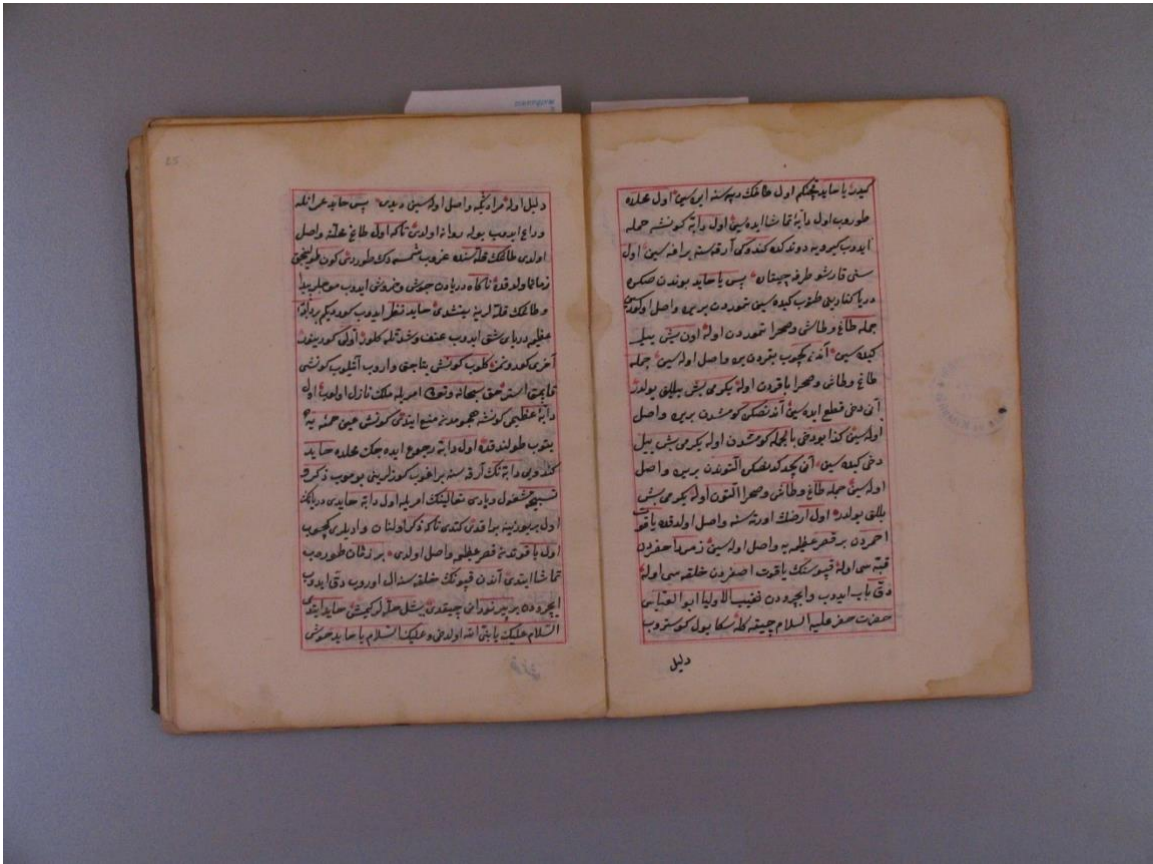 كيده يا حايد چنكم اول طاغك دپه سنه ايره سين اول محلده
طوروب اول دابۀ تماشا ايده سين اول دابة كونشه حمله
ايدوب كيرويه دوندكده كندوكى آرقه سنه براغه سين اول
سنى قارشو طرفه چيقاره پس يا حايد بوندن صكره
دريا كناريني طوتوب كيده سين تموردن بر يره واصل اولورسين
جمله طاغ وطاش وصحرا تموردن اوله اون بش ييل
كيده سين آندن كچوب بقردن يره واصل اوله سين جمله
طاغ وطاش وصحرا باقردن اوله يكرمى بش ييللق يولدر
آنى دخى قطع ايده سين آندنصكره كومشدن بر يره واصل
اوله سين كذا بو دخى بالجمله كومشدن اوله يكرمى بش ييل
دخى كيده سين آنى كچدكدنصكره التوندن بر يره واصل
اوله سين جمله طاغ وطاش وصحرا التون اوله يكرمى بش
ييللق يولدر اول ارضك اورته سنه واصل اولدقده ياقوت
احمردن بر قصر عظيمه يه واصل اوله سين زمرد اخضردن
قبه سى اوله قپوسنك ياقوت اصفردن خلقه سى اوله
دق باب ايدوب وايچرودن نقيب الاوليا ابو العباس
حضرت خضر عليه السلام چيقه كله سكا يول كوستروب
دليل
25
دليل اوله مراديكه واصل اوله سين ديدى پس حايد عمرانله
وداع ايدوب يوله روانه اولدى تاكه اول طاغ محلنه واصل
اولدى طاغك قله سنده غروب شمسه دك طوردى كون طولنجق
زمان اولدقده ناكاه دريادن جوش وخروش ايدوب موجلر پيدا
وطاغك قله لرينه يتشدى حايد نظر ايدوب كورديكم بر دابة
عظيم درياى شق ايدوب عنف وشدتله كلور اولى كورينور
آخرى كورونمز كلوب كونش بتاجق يره واروب آتلوب كونشى
قاپمق استر حق سبحانه وتعالى امريله ملك نازل اولوب اول
دابۀ عظيمى كونشه هجومدن منع ايتدى كونش عين حمئه يه
يتوب طولندقده اول دابة رجوع ايده جك محلده حايد
كندويى دابه نك آرقه سنه براغوب كوزلرينى يوموب ذكر و
تسبيحه مشغول وبارى تعالينك امريله اول دابة حايدى دريانك
اول بر يوزينه براقدى كتدى تاكه ذكر اولنان واديلرى كچوب
اول ياقوتدن قصر عظيمه واصل اولدى بر زمان طوروب
تماشا ايتدى آندن قپونك خلقه سندن ال اوروب دق ايدوب
ايچرودن بر پير نورانى چيقدى يشل حله لر كيمش حايد ايتدى
السلام عليك يا نبى الله اولدخى وعليك السلام يا حايد خوش